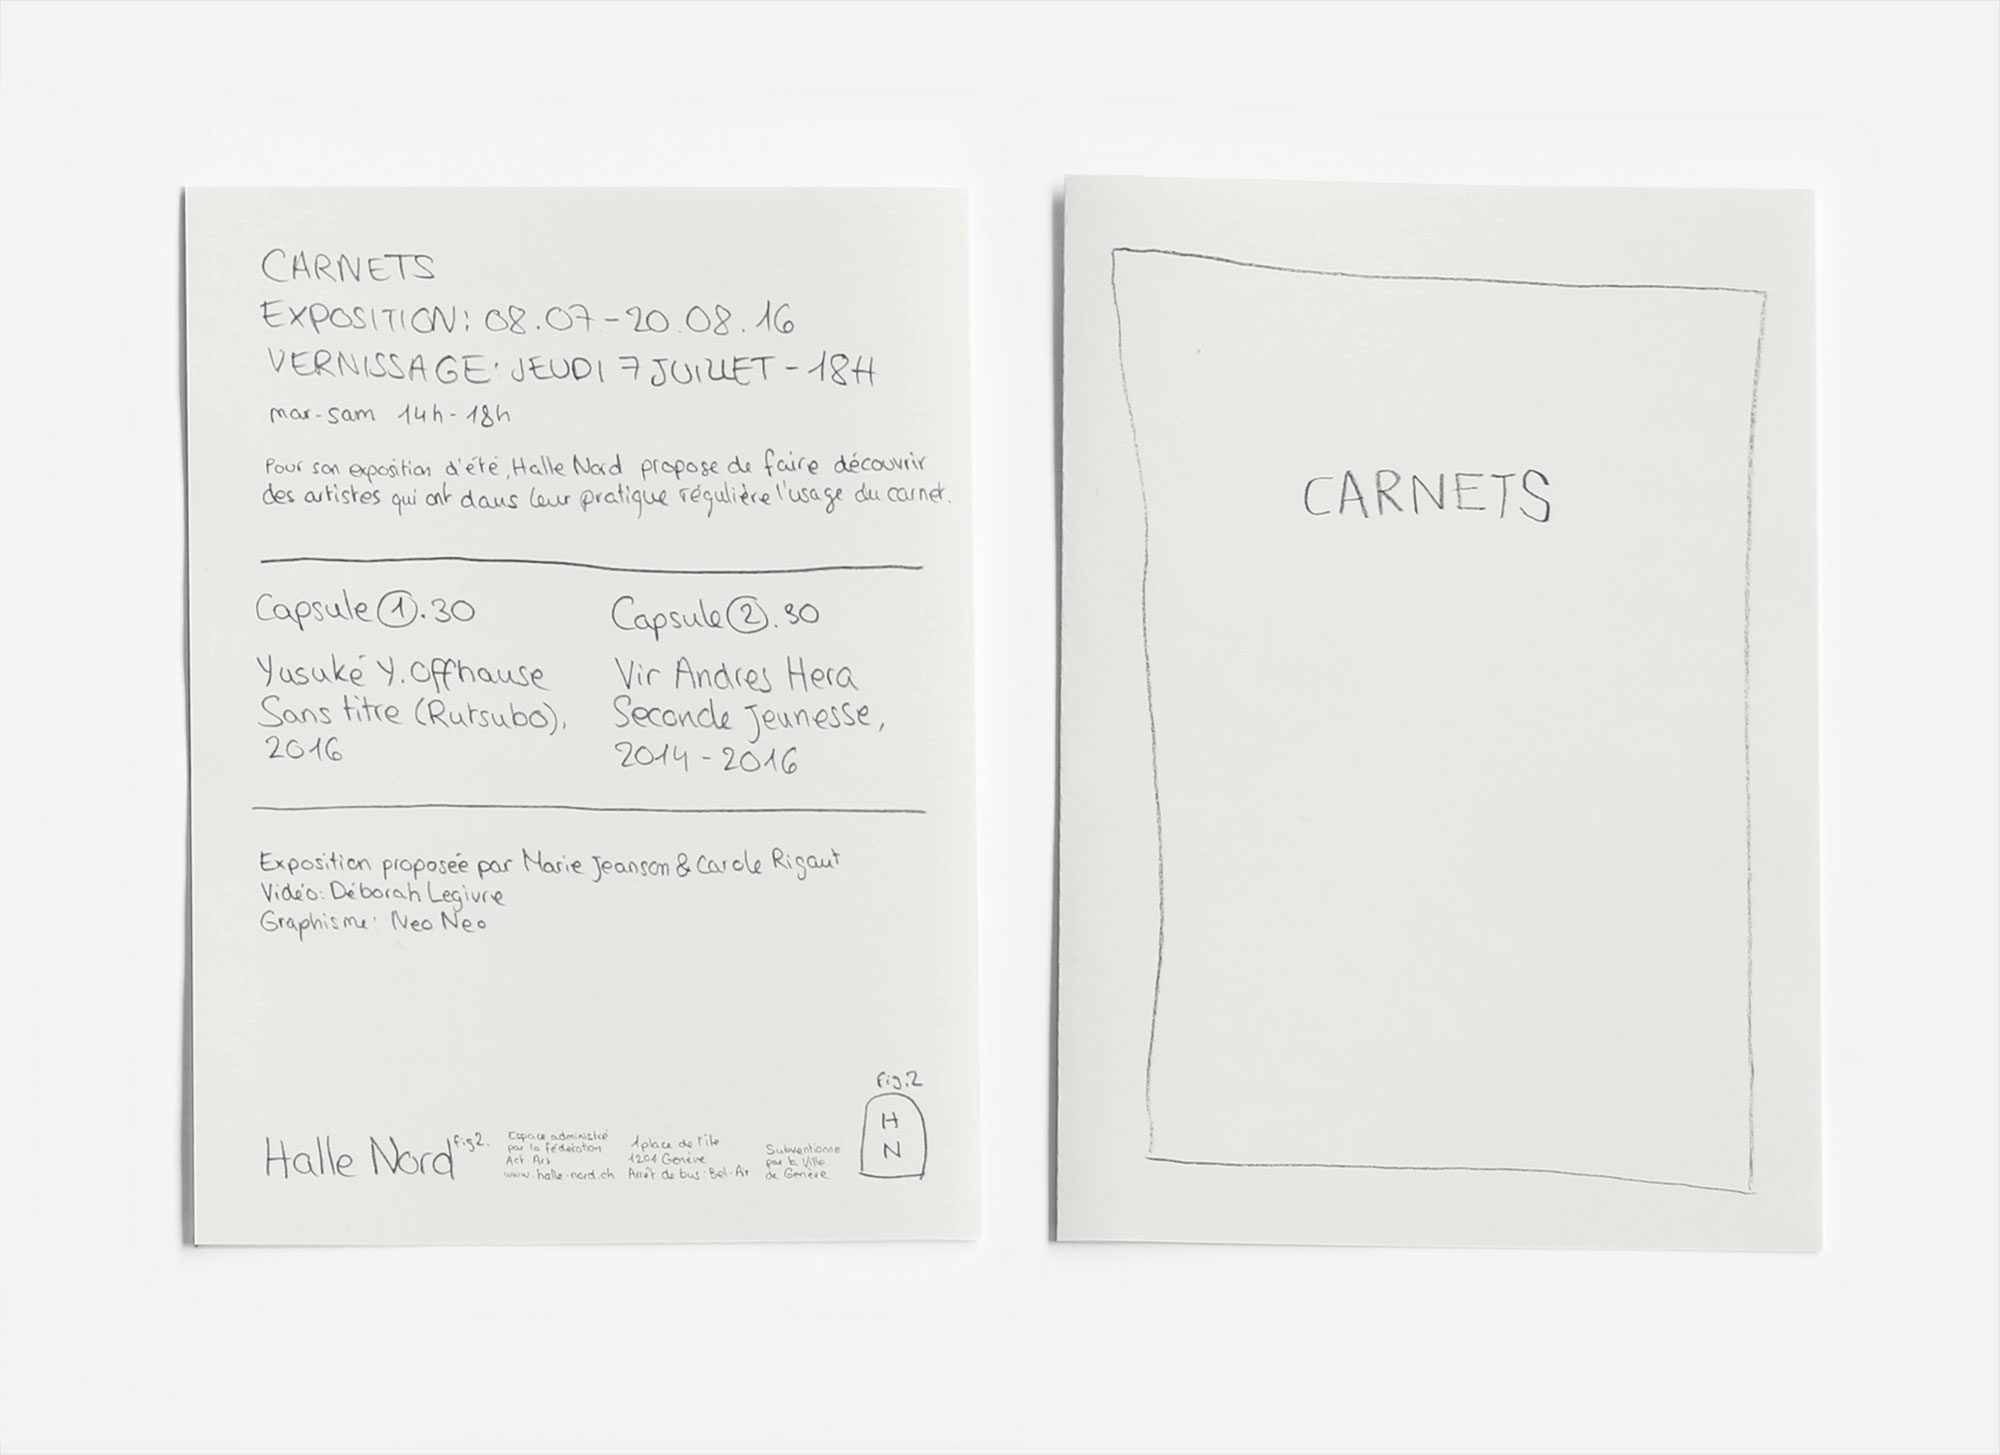 CARNETS
EXPOSITION: 08.07-20.08.16
VERNISSAGE: JEUDI 7 JUILLET - 18H
mar-sam 14h-18h
Pour son exposition d'été, Halle Nord propose de faire découvrir
des artistes qui ont dans leur pratique régulière l'usage du carnet.
Capsule 1.30
Yusuké Y. Offhause
Sans titre (Rutsubo),
2016
Capsule 2.30
Vir Andres Hera
Seconde Jeunesse,
2014-2016
Exposition proposée par Marie Jeanson & Carole Rigaut
Vidéo: Déborah Legivre
Graphisme: Neo Neo
Halle Nord fig2.
Espace administré
par la fédération
Act-Art
www.halle-nord.ch
1 place de l'île
1204 Genève
Arrêt de bus: Bel-Air
Subventionne
par la Ville
de Genève
fig.2
H
N
CARNETS